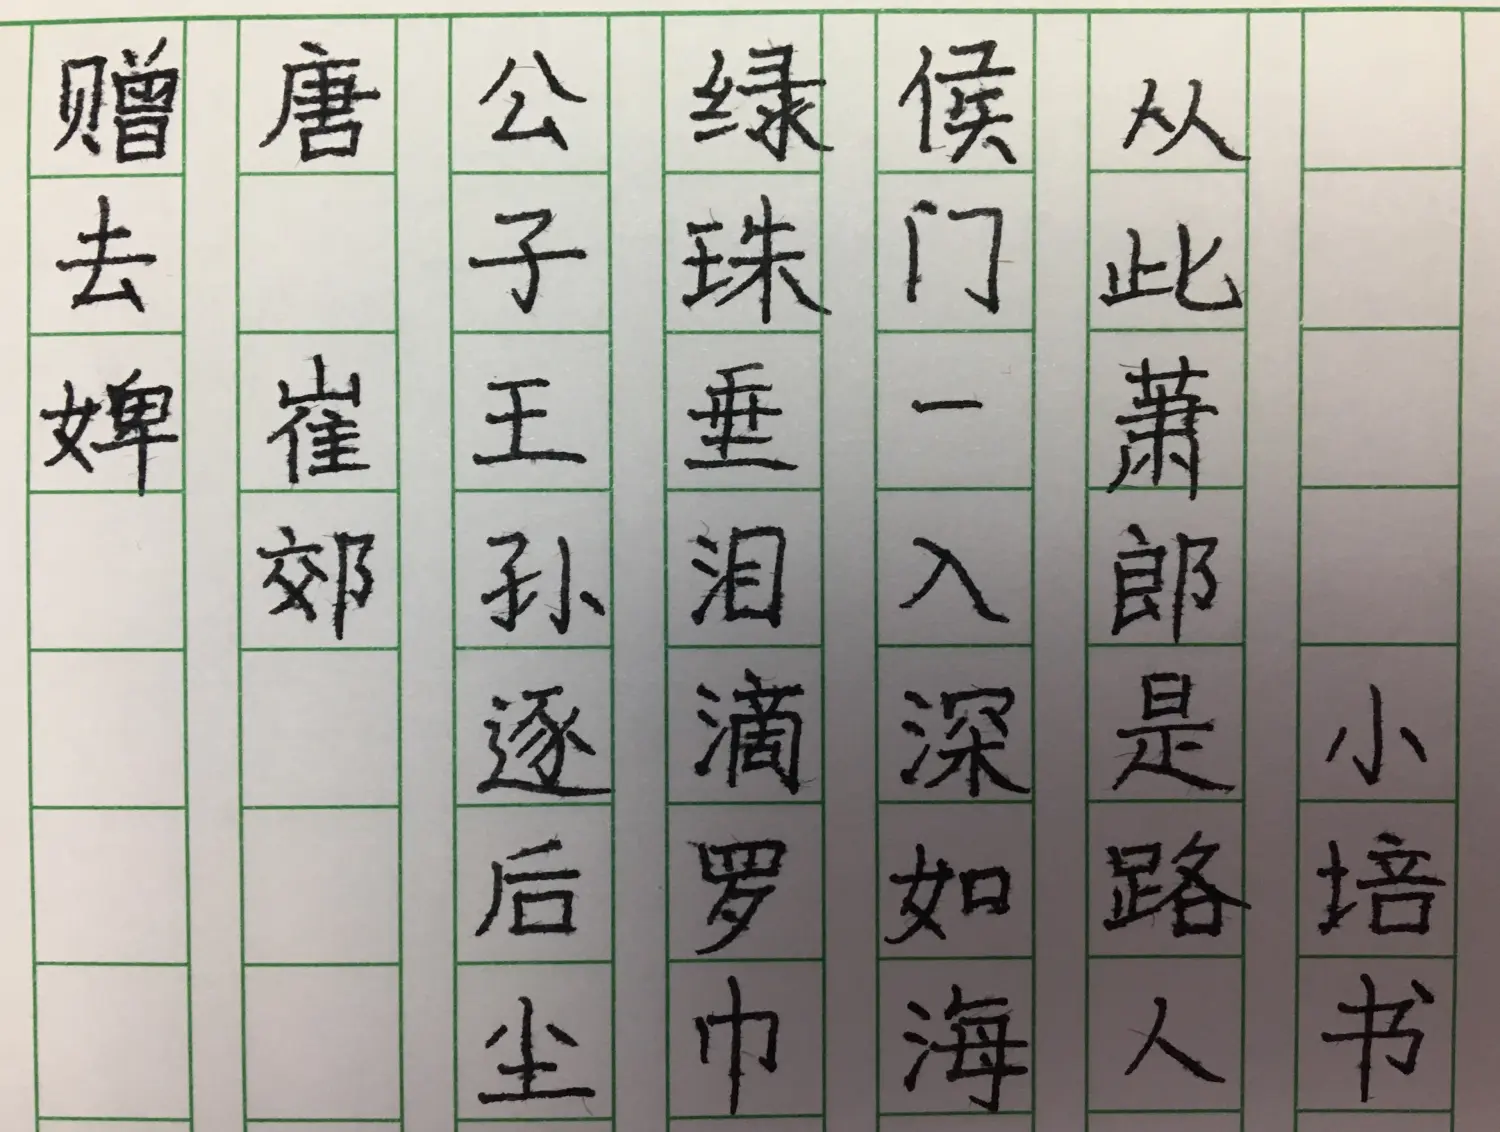 赠去婢
唐 崔郊
公子王孙逐后尘
绿珠垂泪滴罗巾
侯门一入深如海
从此萧郎是路人
小培书